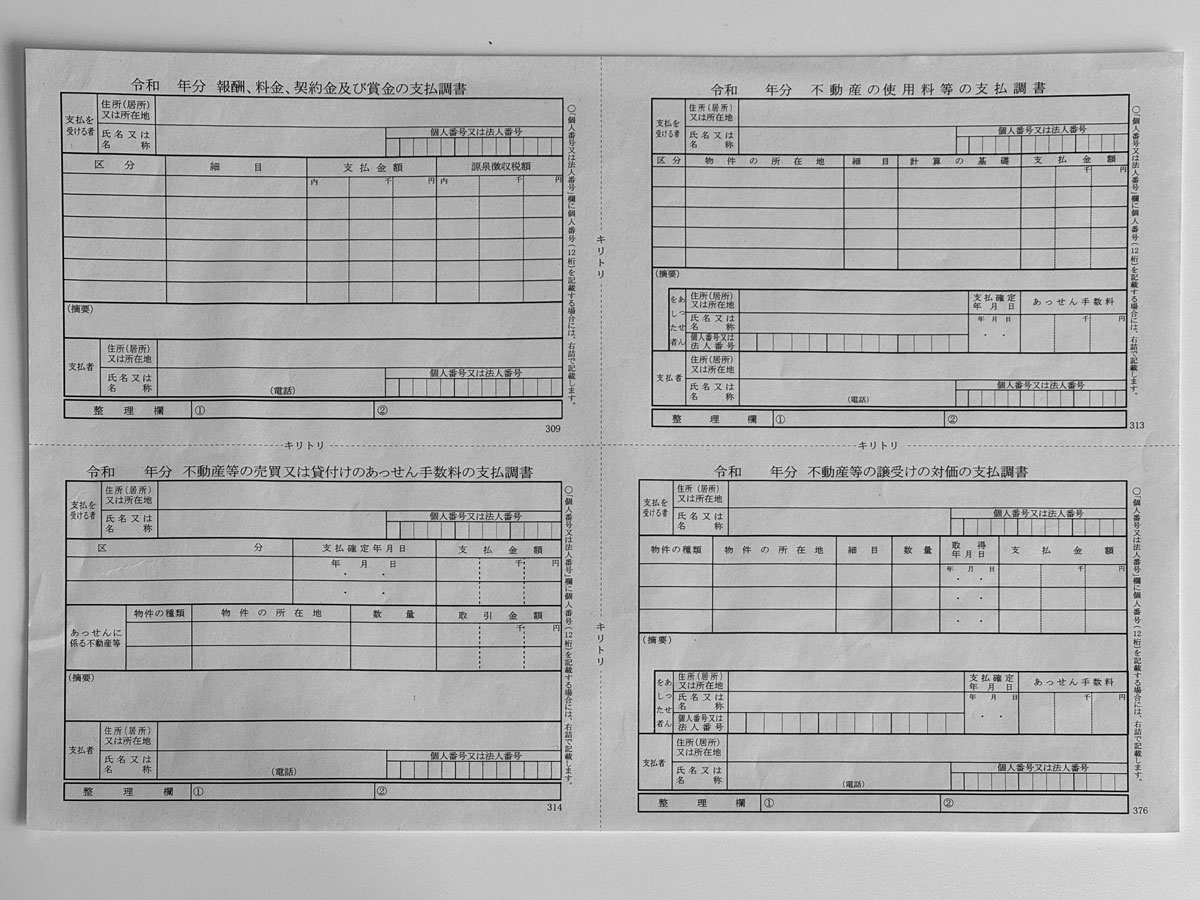 令和　年分 報酬、料金、契約金及び賞金の支払調書
支払を
受ける者
住所(居所)
又は所在地
氏名又は
名　称
個人番号又は法人番号
区　分
細　目
支払金額
源泉徴収税額
内
千
円
内
千
円
(摘要)
支払者
住所(居所)
又は所在地
氏名又は
名　称
(電話)
個人番号又は法人番号
整　理　欄
①
②
309
○「個人番号又は法人番号」欄に個人番号(12桁)を記載する場合には、右詰で記載します。
キリトリ
令和　年分 不動産の使用料等の支払調書
支払を
受ける者
住所(居所)
又は所在地
氏名又は
名　称
個人番号又は法人番号
区分
物件の所在地
細　目
計算の基礎
支払金額
千
円
(摘要)
あっせん
をした者
住所(居所)
又は所在地
氏名又は
名　称
個人番号又は
法人番号
支払確定
年月日
あっせん手数料
年　月　日
・　・
千
円
支払者
住所(居所)
又は所在地
氏名又は
名　称
(電話)
個人番号又は法人番号
整　理　欄
①
②
313
○「個人番号又は法人番号」欄に個人番号(12桁)を記載する場合には、右詰で記載します。
キリトリ
キリトリ
令和　年分 不動産等の売買又は貸付けのあっせん手数料の支払調書
支払を
受ける者
住所(居所)
又は所在地
氏名又は
名　称
個人番号又は法人番号
区　分
支払確定年月日
支払金額
年　月　日
・　・
・　・
千
円
あっせんに
係る不動産等
物件の種類
物件の所在地
数　量
取引金額
千
円
(摘要)
支払者
住所(居所)
又は所在地
氏名又は
名　称
(電話)
個人番号又は法人番号
整　理　欄
①
②
314
○「個人番号又は法人番号」欄に個人番号(12桁)を記載する場合には、右詰で記載します。
キリトリ
令和　年分 不動産等の譲受けの対価の支払調書
支払を
受ける者
住所(居所)
又は所在地
氏名又は
名　称
個人番号又は法人番号
物件の種類
物件の所在地
細　目
数　量
取得
年月日
支払金額
年　月　日
・　・
・　・
・　・
千
円
(摘要)
あっせん
をした者
住所(居所)
又は所在地
氏名又は
名　称
個人番号又は
法人番号
支払確定
年月日
あっせん手数料
年　月　日
・　・
千
円
支払者
住所(居所)
又は所在地
氏名又は
名　称
(電話)
個人番号又は法人番号
整　理　欄
①
②
376
○「個人番号又は法人番号」欄に個人番号(12桁)を記載する場合には、右詰で記載します。